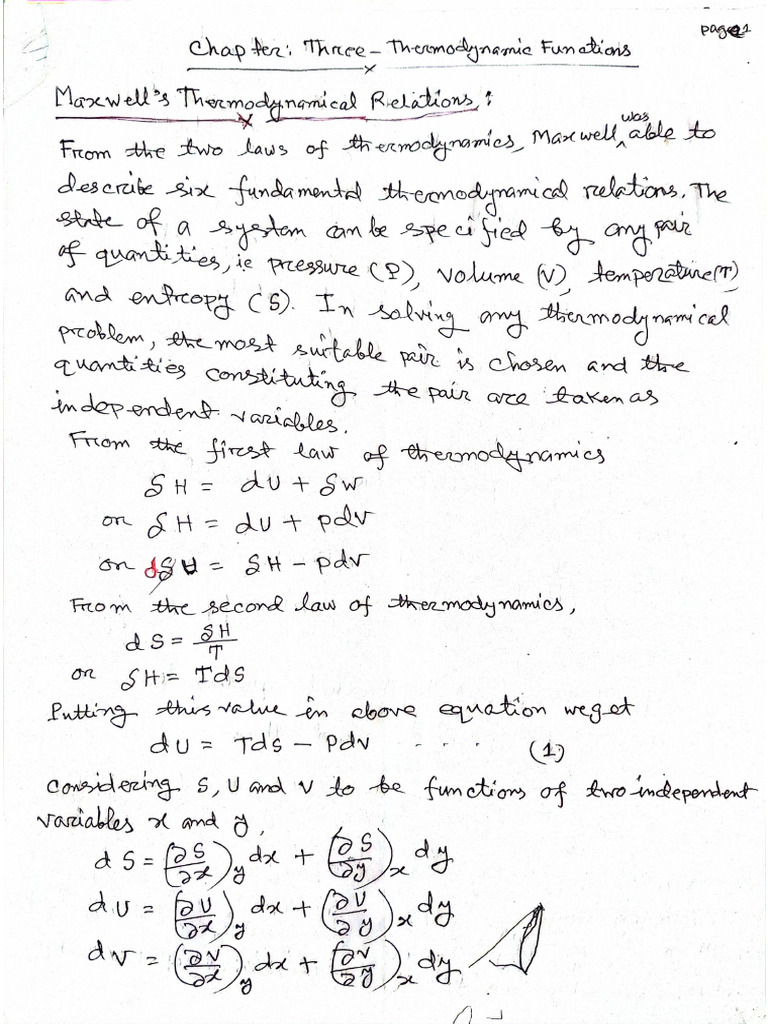 page 1
Chapter: Three - Thermodynamic Functions
Maxwell's Thermodynamical Relations:
From the two laws of thermodynamics, Maxwell was able to
describe six fundamental thermodynamical relations. The
state of a system can be specified by any pair
of quantities, ie pressure (P), volume (V), temperature (T)
and entropy (S). In solving any thermodynamical
problem, the most suitable pair is chosen and the
quantities constituting the pair are taken as
independent variables.
From the first law of thermodynamics
δH = dU + δW
or δH = dU + pdV
or dU = δH - pdV
From the second law of thermodynamics,
dS = δH/T
or δH = TdS
Putting this value in above equation we get
dU = Tds - Pdv .... (1)
Considering S, U and V to be functions of two independent
variables x and y,
dS = (∂S/∂x)_y dx + (∂S/∂y)_x dy
dU = (∂U/∂x)_y dx + (∂U/∂y)_x dy
dV = (∂V/∂x)_y dx + (∂V/∂y)_x dy